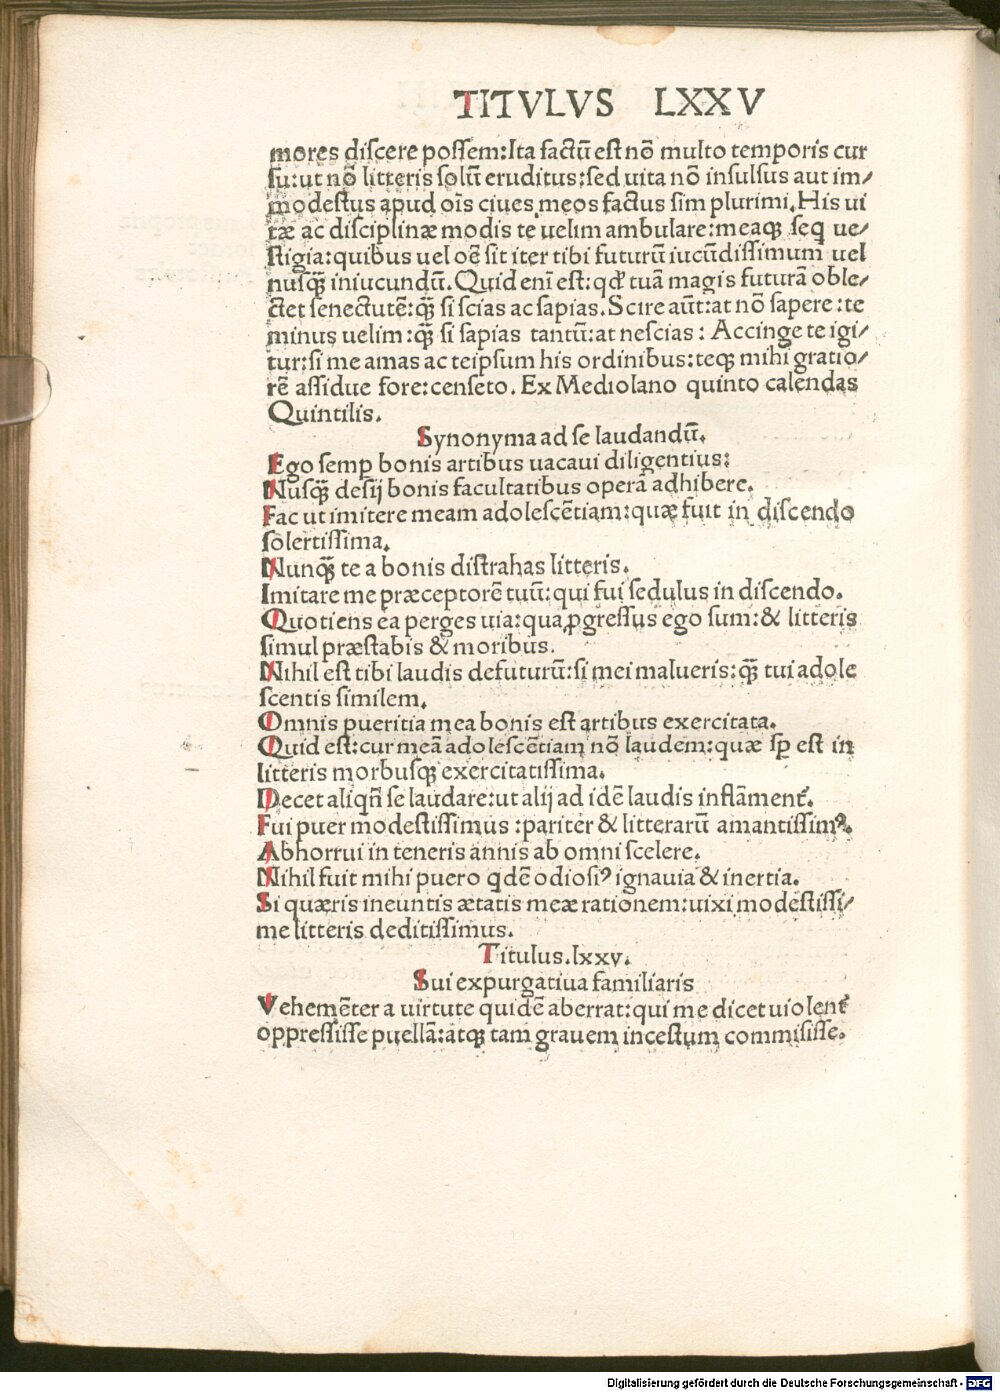 TITVLVS LXXV
mores discere possem:Ita factũ est nõ multo temporis cur
su:ut nõ litteris solũ eruditus:sed uita nõ insulsus aut im/
modestus apud oĩs ciues meos factus sim plurimi.His ui
tæ ac disciplinæ modis te uelim ambulare:meaqꝫ seq ue/
stigia:quibus uel oẽ sit iter tibi futurũ iucũdissimum uel
nusq̃ iniucundũ.Quid eni est:qđ tuã magis futurã oble/
ctet senectutẽ:q̃ si scias ac sapias.Scire aũt:at nõ sapere:te
minus uelim:q̃ si sapias tantũ:at nescias: Accinge te igi/
tur:si me amas ac teipsum his ordinibus:teqꝫ mihi gratio/
rẽ assidue fore:censeto.Ex Mediolano quinto calendas
Quintilis.
Synonyma ad se laudandũ.
Ego semꝑ bonis artibus uacaui diligentius:
Nusq̃ desij bonis facultatibus operã adhibere.
Fac ut imitere meam adolescẽtiam:quæ fuit in discendo
solertissima.
Nunq̃ te a bonis distrahas litteris.
Imitare me præceptorẽ tuũ:qui fui sedulus in discendo.
Quotiens ea perges uia:qua ꝓgressus ego sum:& litteris
simul præstabis & moribus.
Nihil est tibi laudis defuturũ:si mei malueris:q̃ tui adole
scentis similem.
Omnis pueritia mea bonis est artibus exercitata.
Quid est:cur meã adolescẽtiam nõ laudem:quæ sꝑ est in
litteris morbusqꝫ exercitatissima.
Decet aliqñ se laudare:ut alij ad idẽ laudis inflãment̃.
Fui puer modestissimus:pariter & litterarũ amantissimꝰ.
Abhorrui in teneris annis ab omni scelere.
Nihil fuit mihi puero qdẽ odiosiꝰ ignauia & inertia.
Si quæris ineuntis ætatis meæ rationem:uixi modestissi/
me litteris deditissimus.
Titulus.lxxv.
Sui expurgatiua familiaris
Vehemẽter a uirtute quidẽ aberrat:qui me dicet uiolent̃
oppressisse puellã:atqꝫ tam grauem incestum commisisse.
Digitalisierung gefördert durch die Deutsche Forschungsgemeinschaft - DFG